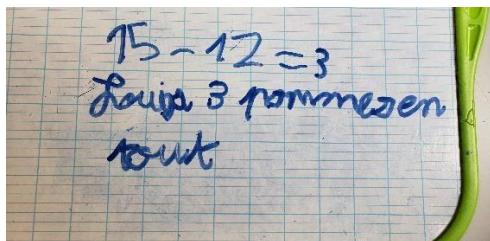 15-12=3
Louis a 3 pommes en
tout